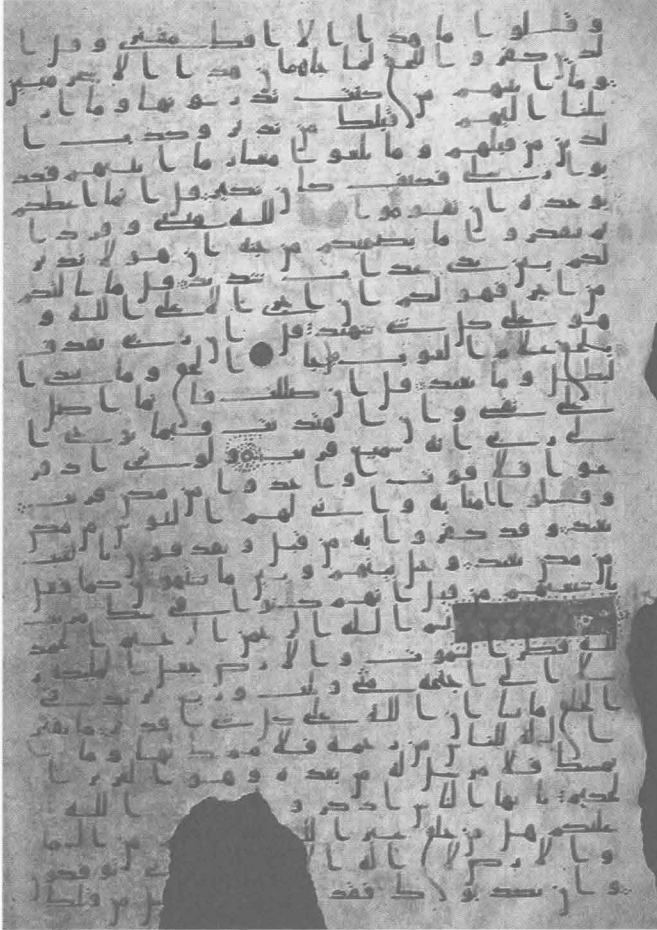 و قلوا ما هذا الا افك مفترى و قل ا
لذين كفروا للحق لما جاهم ان هذا الا سحر مبين
و ما اتينهم من كتب يدرسونها و ما ار
سلنا اليهم قبلك من نذير و كذب ا
لذين من قبلهم و ما بلغوا معشار ما اتينهم فكذ
بوا رسلي فكيف كان نكير قل انما اعظكم
بوحده ان تقوموا لله مثنى و فردى
ثم تتفكروا ما بصحبكم من جنه ان هو الا نذير
لكم بين يدي عذاب شديد قل ما سالتكم
من اجر فهو لكم ان اجري الا على الله و
هو على كل شي شهيد قل ان ربي يقذف
بالحق علم الغيوب قل جا الحق و ما يبدى ا
لبطل و ما يعيد قل ان ضللت فانما اضل
على نفسي و ان اهتديت فبما يوحي ا
لي ربي انه سميع قريب و لو ترى اذ فز
عوا فلا فوت و اخذوا من مكن قريب
و قلوا امنا به و انى لهم التنوش من مكن
بعيد و قد كفروا به من قبل و يقذفون بالغيب
من مكن بعيد و حيل بينهم و بين ما يشتهون كما فعل
باشيعهم من قبل انهم كنوا في شك مريب
بسم الله الرحمن الرحيم الحمد
لله فطر السموت و الارض جعل الملئكه ر
سلا اولي اجنحه مثنى و ثلث و ربع يزيد في
الخلق ما يشا ان الله على كل شي قدير ما يفتح
الله للناس من رحمه فلا ممسك لها و ما
يمسك فلا مرسل له من بعده و هو العزيز ا
لحكيم يايها الناس اذكروا الله
عليكم هل من خلق غير الله من السما
و الارض لا اله الا توفكو
ن و ان يكذبوك فقد من قبلك